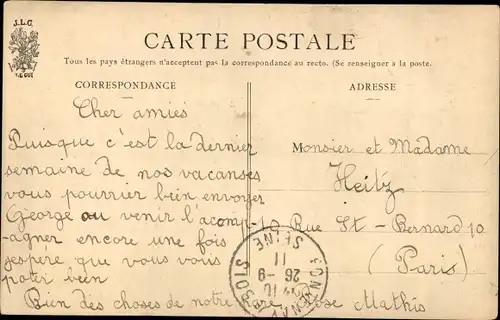 J.L.C.
LE GUI
CARTE POSTALE
Tous les pays étrangers n'acceptent pas la correspondance au recto. (Se renseigner à la poste.
CORRESPONDANCE
Cher amies
Puisque c'est la dernier
semaine de nos vacanses
vous pourrier bein envoyer
George au venir l'acomp-
agner encore une fois
jespere que vous vous
poter bein
Bien des choses de notre Rose Mathis
ADRESSE
Monsier et Madame
Heitz
10 Rue St-Bernard 10
(Paris)
FONTENAY S BOIS
11
26-9
SEINE